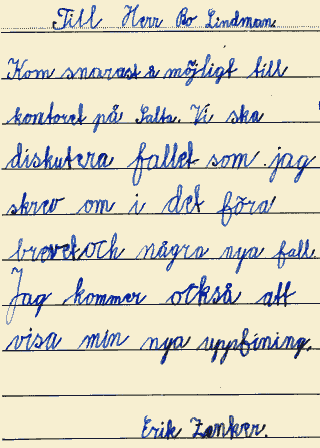 Till Herr Bo Lindman.
Kom snarast möjligt till
kontoret på Salta. Vi ska
diskutera fallet som jag
skrev om i det förra
brevet och några nya fall.
Jag kommer också att
visa min nya uppfining.
Erik Zenker.